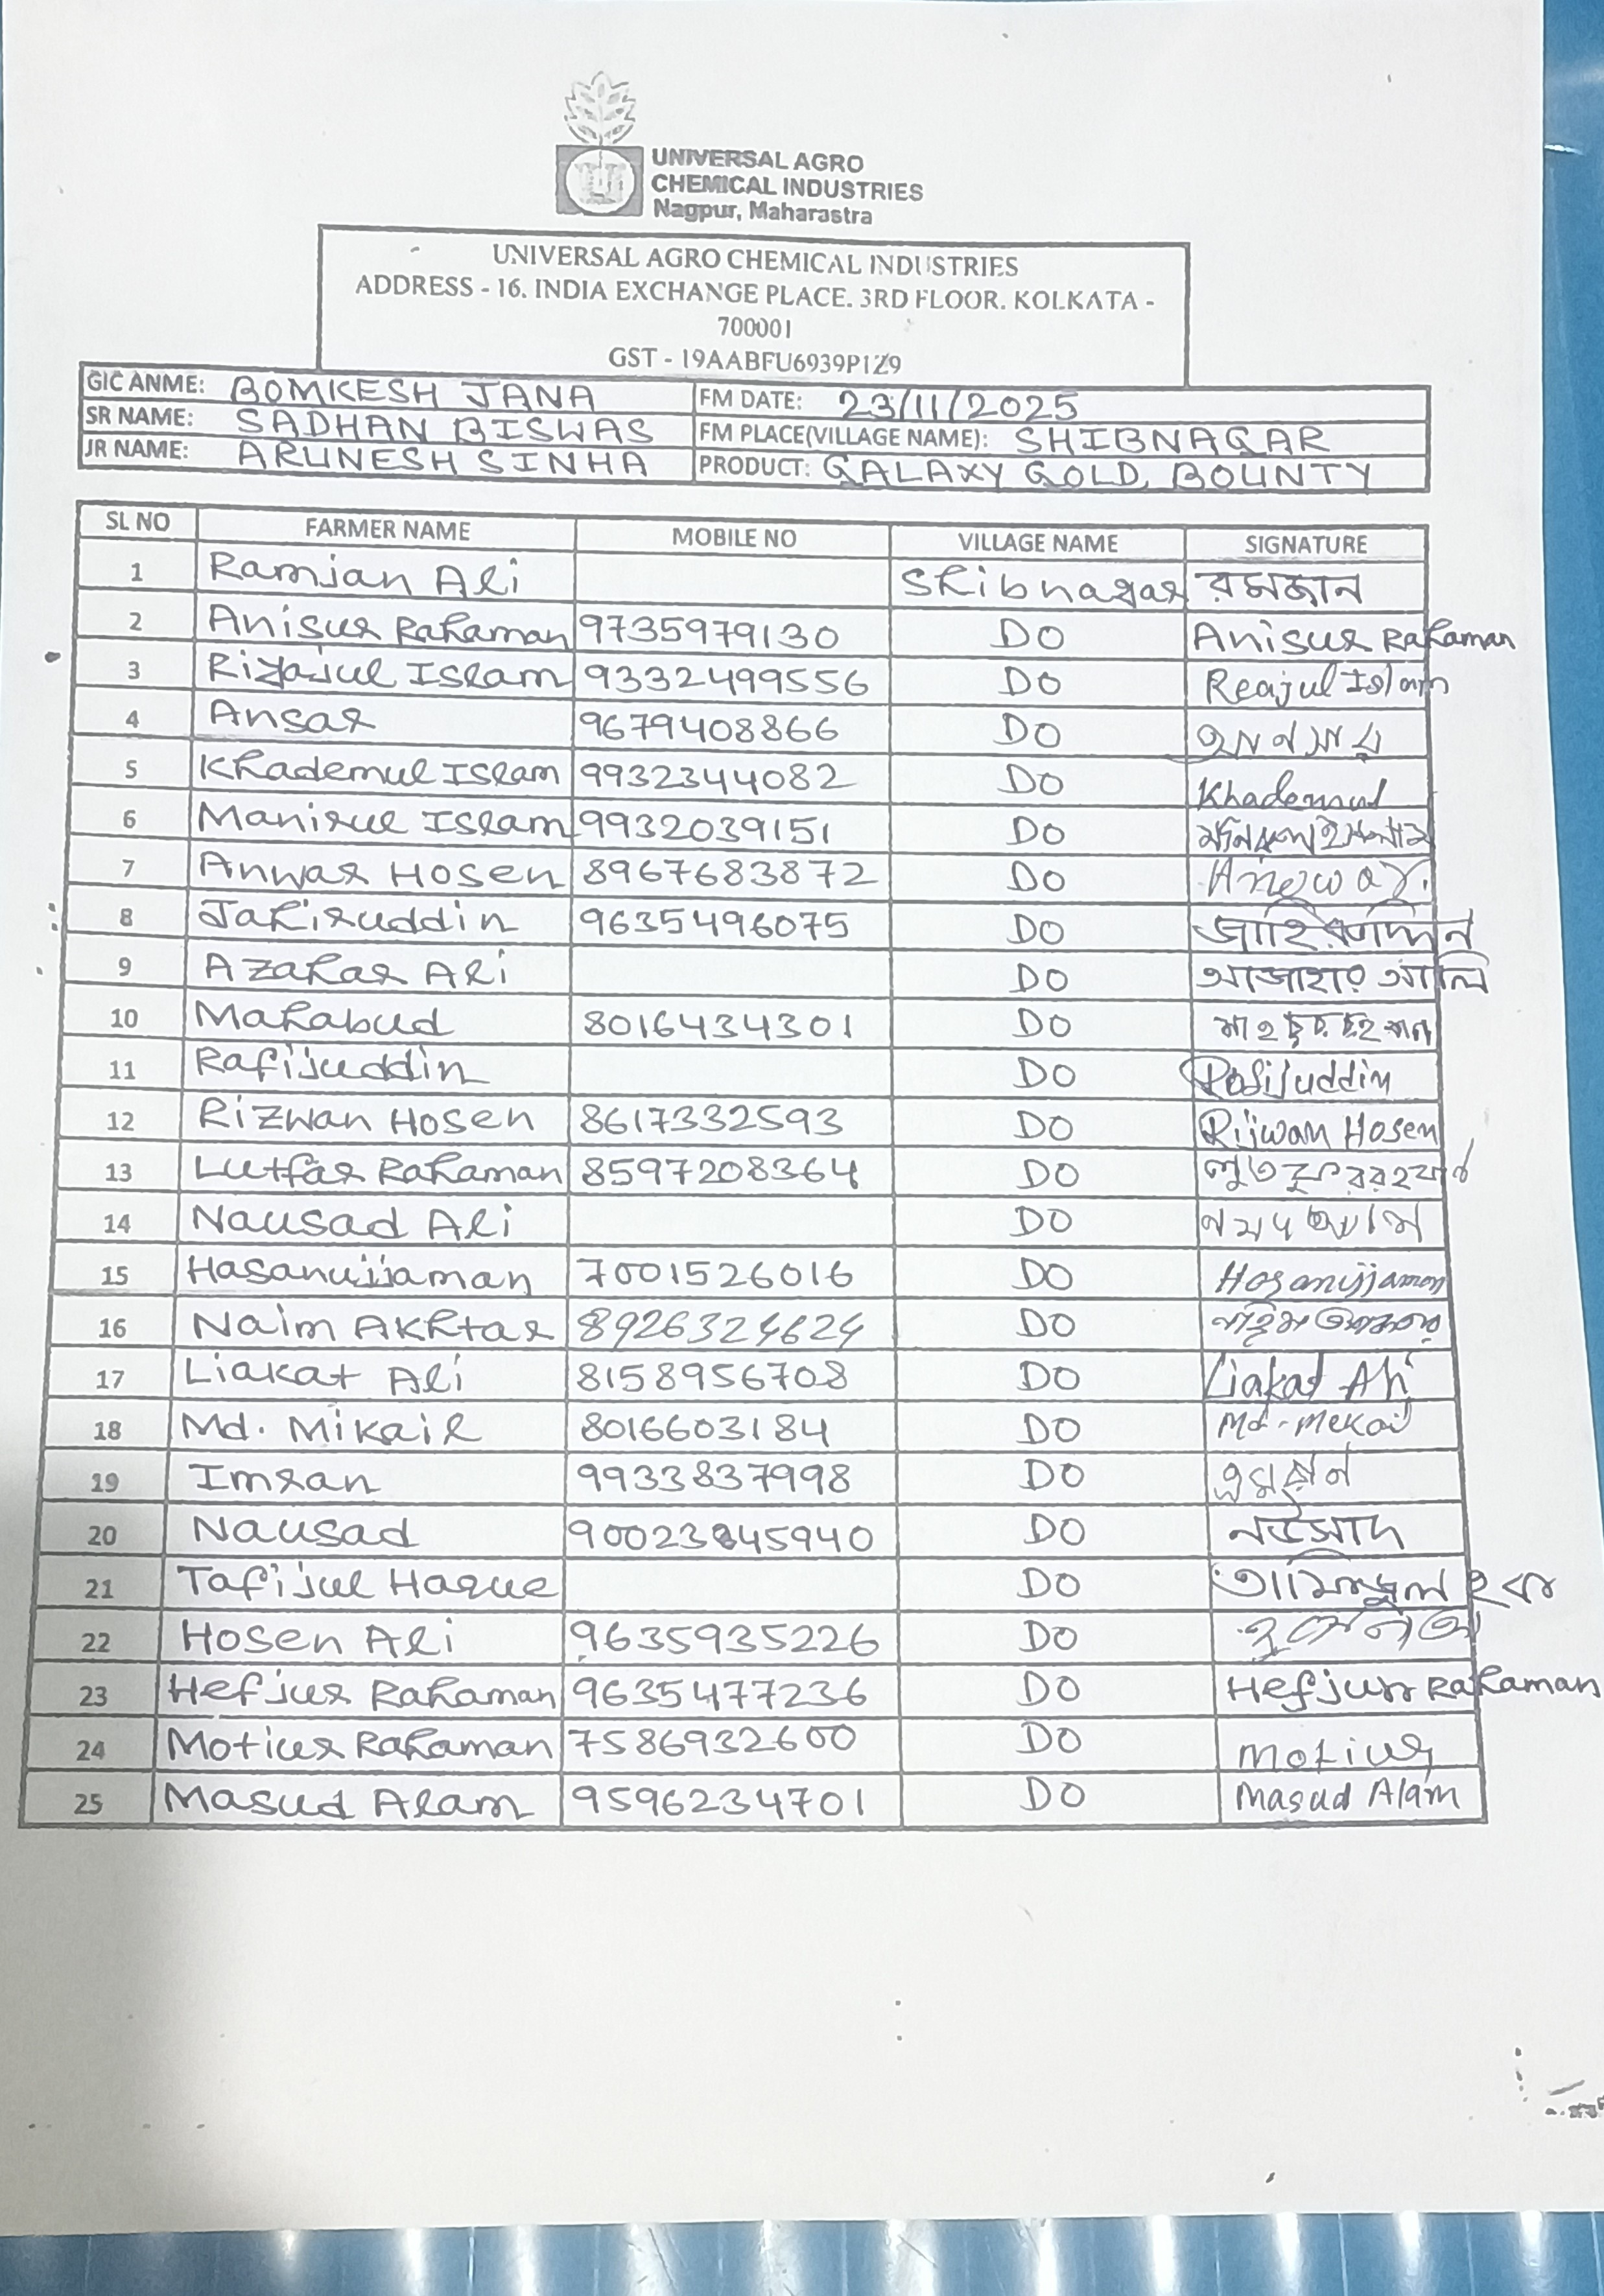 UNIVERSAL AGRO
CHEMICAL INDUSTRIES
Nagpur, Maharastra
UNIVERSAL AGRO CHEMICAL INDUSTRIES
ADDRESS - 16. INDIA EXCHANGE PLACE. 3RD FLOOR. KOLKATA -
700001
GST - 19AABFU6939P1Z9
GIC ANME: BOMKESH JANA FM DATE: 23/11/2025
SR NAME: SADHAN BISWAS FM PLACE(VILLAGE NAME): SHIBNAGAR
JR NAME: ARUNESH SINHA PRODUCT: GALAXY GOLD, BOUNTY
SL NO FARMER NAME MOBILE NO VILLAGE NAME SIGNATURE
1 Ramjan Ali Shibnagar রমজান
2 Anisur Rahaman 9735979130 DO Anisur Rahaman
3 Rizajul Islam 9332499556 DO Reajul Islam
4 Ansar 9679408866 DO
5 Khademul Islam 9932344082 DO Khademul
6 Manirul Islam 9932039151 DO
7 Anwar Hosen 8967683872 DO
8 Jahiruddin 9635496075 DO
9 Azahar Ali DO আজাহার আলি
10 Mahabud 8016434301 DO
11 Rafijuddin DO Rafijuddin
12 Rizwan Hosen 8617332593 DO Rijwan Hosen
13 Lutfar Rahaman 8597208364 DO
14 Nausad Ali DO
15 Hasanujjaman 7001526016 DO Hosanujjamon
16 Naim Akhtar 8926324624 DO
17 Liakat Ali 8158956708 DO Liakat Ali
18 Md. Mikail 8016603184 DO Md-Mekail
19 Imran 9933837998 DO
20 Nausad DO নউসাদ
21 Tafijul Haque DO
22 Hosen Ali 9635935226 DO
23 Hefjur Rahaman 9635477236 DO Hefjur Rahaman
24 Motiur Rahaman 7586932600 DO Motiur
25 Masud Alam 9596234701 DO Masud Alam